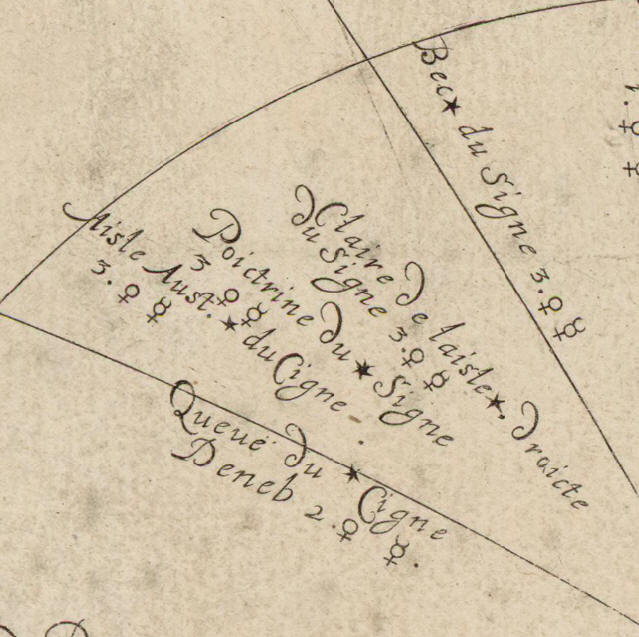 Bec★ du Signe 3.♀☿
Claire de laisle★. droicte
du Signe 3.♀☿
Poictrine du ★ Signe
3 ♀☿
Aisle Aust. ★ du Cigne
3. ♀ ☿
Queue du ★ Cigne
Deneb 2.♀ ☿.